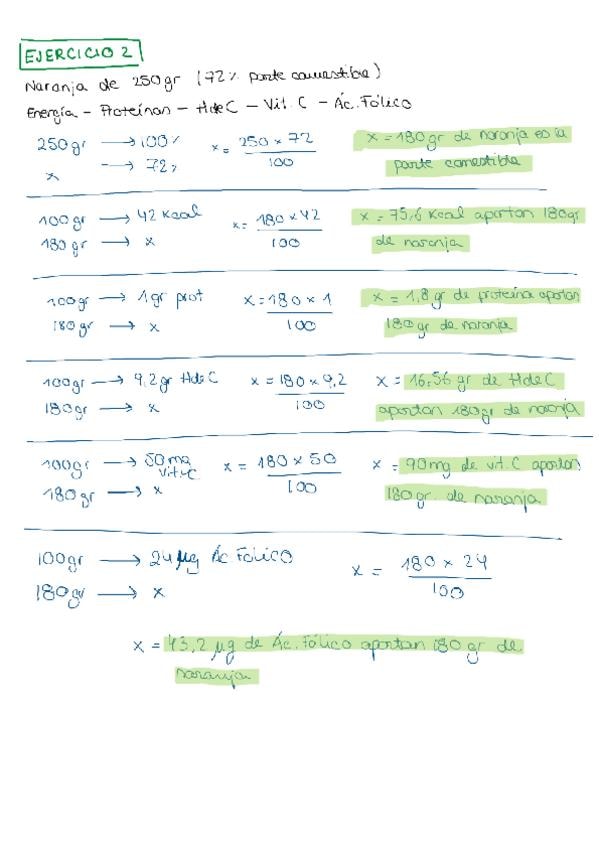 EJERCICIO 2
Naranja de 250gr (72% parte comestible)
Energía - Proteínas - HdeC - Vit. C - Ác. Fólico
250gr → 100% x = 250 × 72 / 100 x = 180gr de naranja es la
x → 72% parte comestible
100gr → 42 Kcal x = 180 × 42 / 100 x = 75,6 Kcal aportan 180gr
180gr → x de naranja
100gr → 1gr prot x = 180 × 1 / 100 x = 1,8 gr de proteína aportan
180gr → x 180gr de naranja
100gr → 9,2gr HdeC x = 180 × 9,2 / 100 x = 16,56 gr de HdeC
180gr → x aportan 180gr de naranja
100gr → 50mg Vit.C x = 180 × 50 / 100 x = 90mg de vit. C aportan
180gr → x 180gr. de naranja
100gr → 24 µg Ác Fólico x = 180 × 24 / 100
180gr → x
x = 43,2 µg de Ác. Fólico aportan 180 gr de
naranja